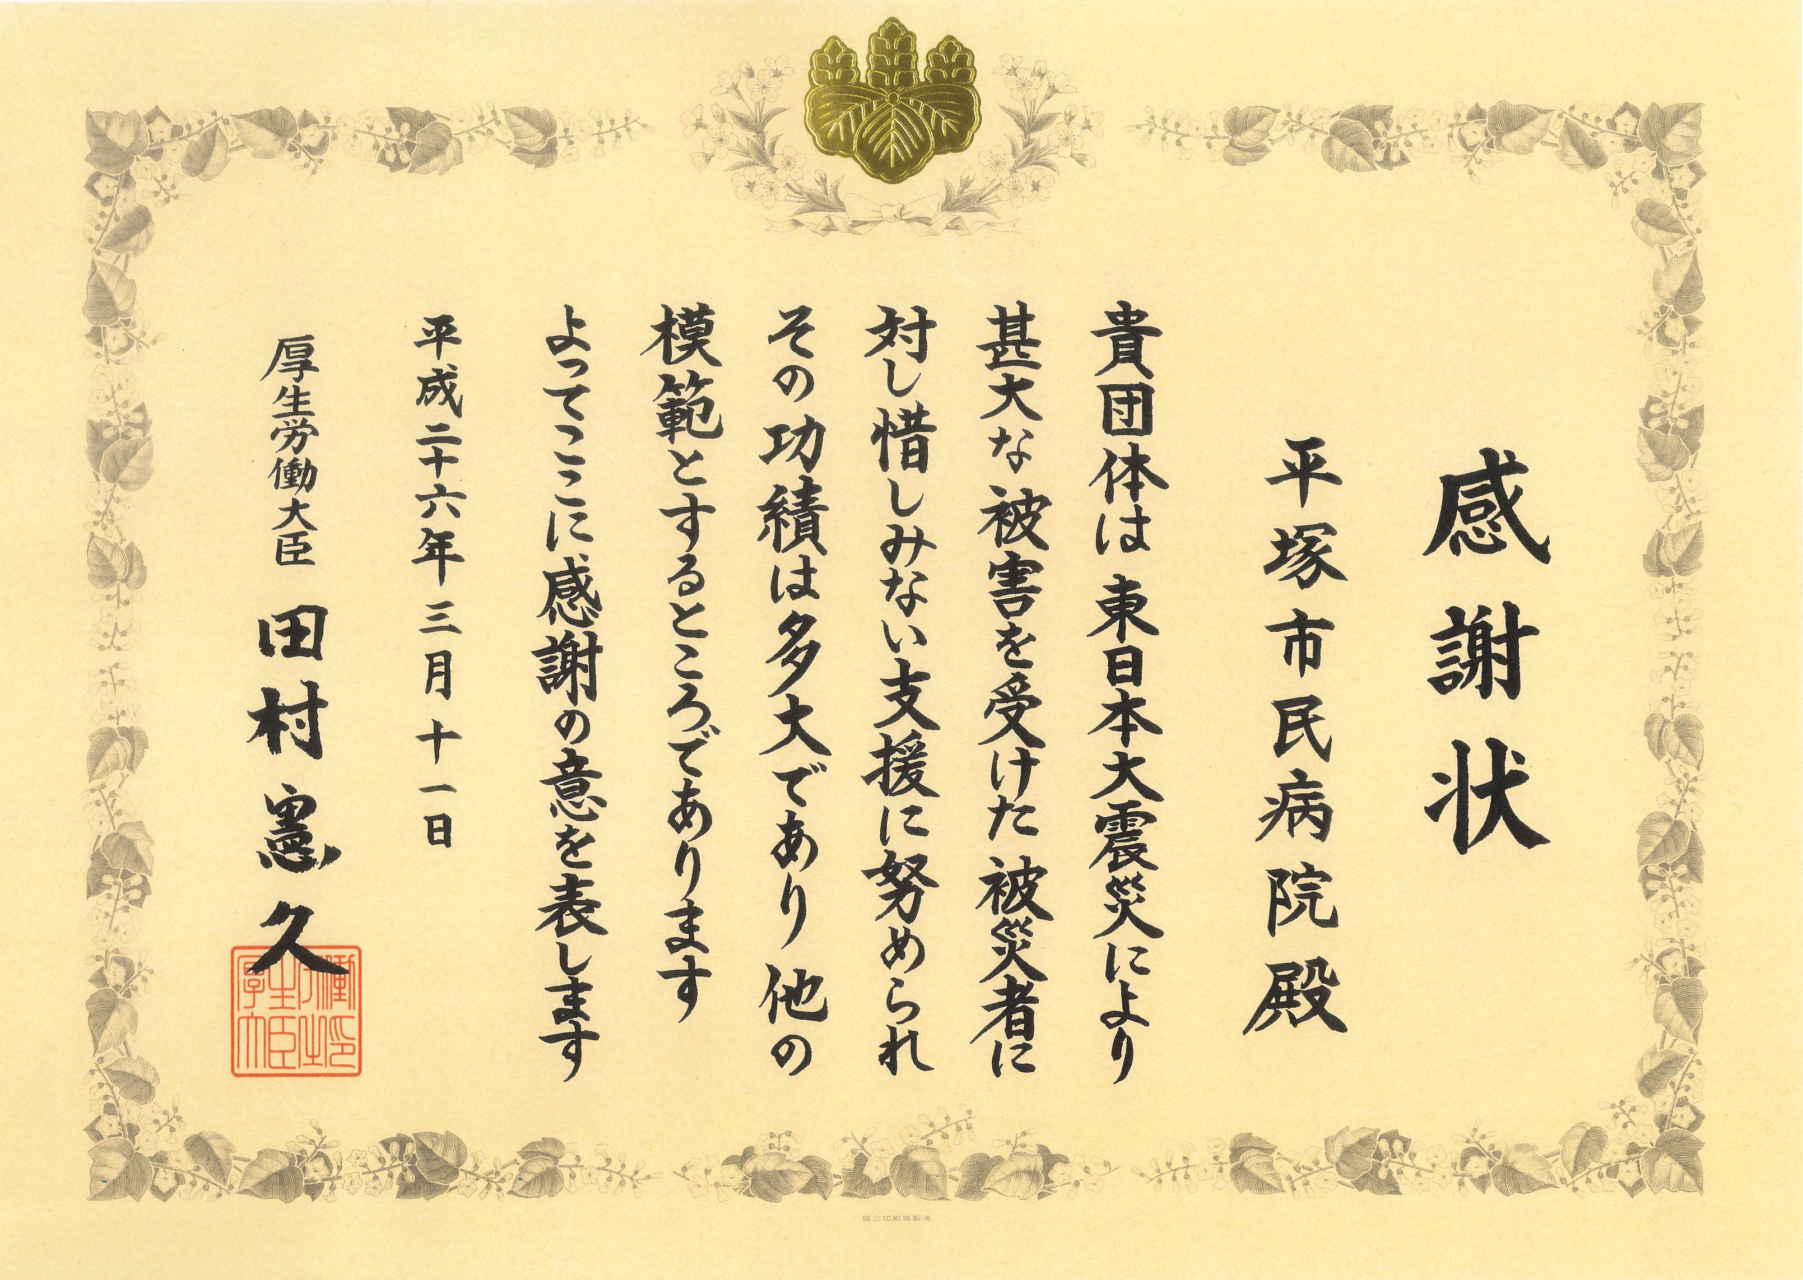 感謝状
平塚市民病院殿
貴団体は東日本大震災により
甚大な被害を受けた被災者に
対し惜しみない支援に努められ
その功績は多大であり他の
模範とするところであります
よってここに感謝の意を表します
平成二十六年三月十一日
厚生労働大臣 田村憲久
厚生労働大臣之印
国立印刷局製造